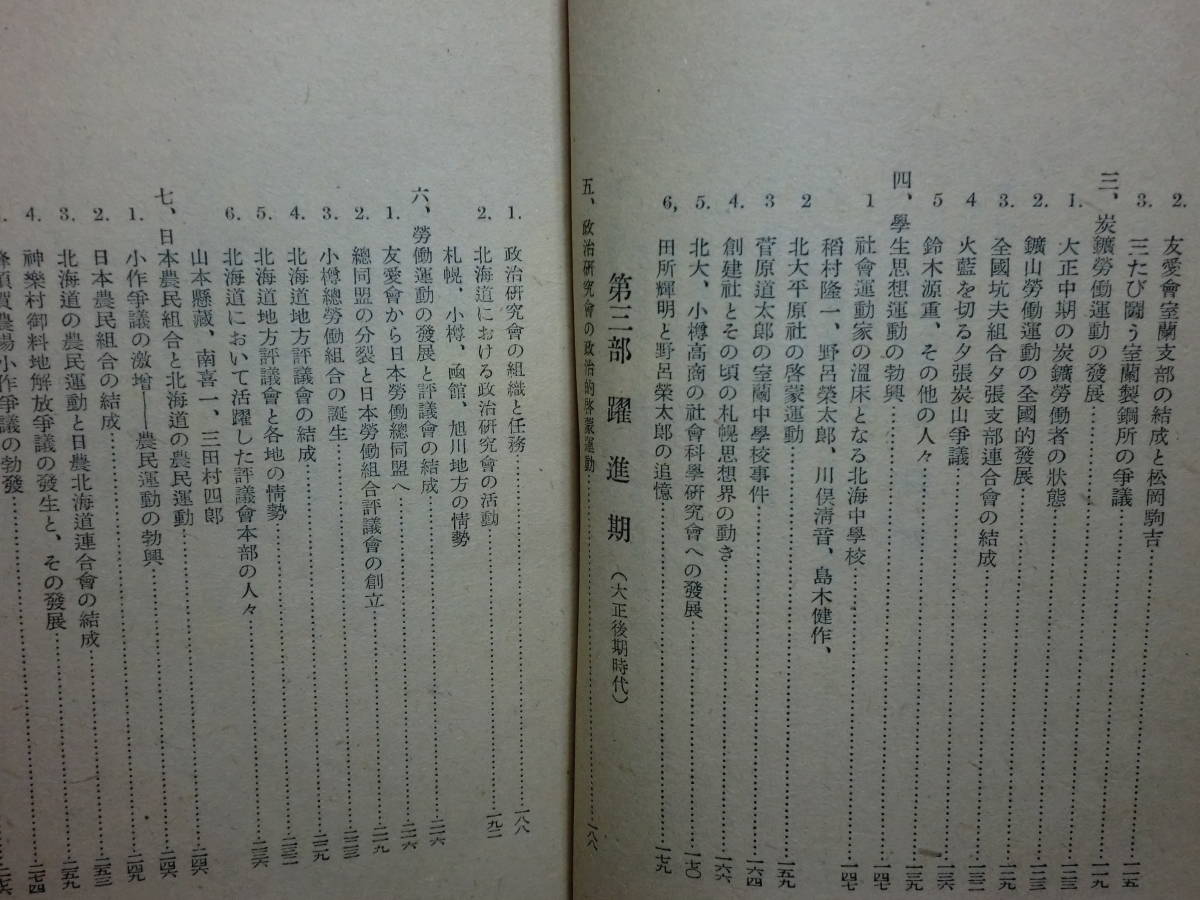 2. 友愛會室蘭支部の結成と松岡駒吉
3. 三たび鬪う室蘭製鋼所の爭議……一一五
三、炭鑛勞働運動の發展……一一九
1. 大正中期の炭鑛勞働者の狀態……一二三
2. 鑛山勞働運動の全國的發展……一二三
3. 全國坑夫組合夕張支部連合會の結成……一二九
4 火藍を切る夕張炭山爭議……一三二
5 鈴木源重、その他の人々……一三六
四、學生思想運動の勃興……一三九
1 社會運動家の溫床となる北海中學校……一四七
稻村隆一、野呂榮太郎、川俣淸音、島木健作、……一四七
2 北大平原社の啓蒙運動……一五九
3 菅原道太郎の室蘭中學校事件……一六四
4. 創建社とその頃の札幌思想界の動き……一六六
5. 北大、小樽高商の社會科學硏究會への發展……一七〇
6, 田所輝明と野呂榮太郎の追憶……一七九
第三部 躍進期（大正後期時代）
五、政治硏究會の政治的啓蒙運動……一八八
1. 政治硏究會の組織と任務……一八八
2. 北海道における政治硏究會の活動……一九二
札幌、小樽、函館、旭川地方の情勢
六、勞働運動の發展と評議會の結成……二一六
1. 友愛會から日本勞働總同盟へ……二一六
2. 總同盟の分裂と日本勞働組合評議會の創立……二一九
3. 小樽總勞働組合の誕生……二二三
4. 北海道地方評議會の結成……二二九
5. 北海道地方評議會と各地の情勢……二三二
6. 北海道において活躍した評議會本部の人々……二三六
山本懸藏、南喜一、三田村四郎
七、日本農民組合と北海道の農民運動……二四六
1. 小作爭議の激增——農民運動の勃興……二四六
2. 日本農民組合の結成……二四九
3. 北海道の農民運動と日農北海道連合會の結成……二五三
4. 神樂村御料地解放爭議の發生と、その發展……二五九
農場小作爭議の勃發……二七四